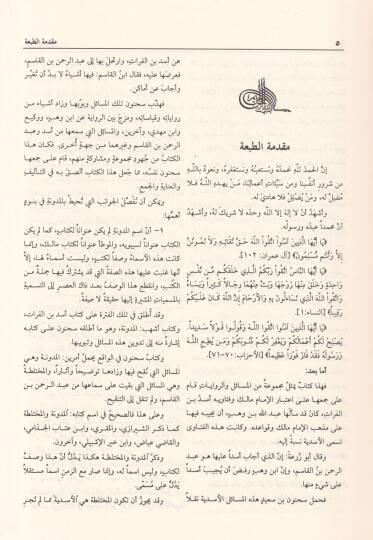 مقدمة الطبعة
٥
مقدمة الطبعة
إن الحمد لله نحمده ونستعينه ونستغفره، ونعوذ بالله
من شرور أنفسنا ومن سيئات أعمالنا، من يهده الله فلا
مضل له، ومن يضلل فلا هادي له.
وأشهد أن لا إله إلا الله وحده لا شريك له، وأشهد
أن محمدًا عبده ورسوله.
﴿يا أيها الذين آمنوا اتقوا الله حق تقاته ولا تموتن
إلا وأنتم مسلمون﴾ [آل عمران: ١٠٢].
﴿يا أيها الناس اتقوا ربكم الذي خلقكم من نفس
واحدة وخلق منها زوجها وبث منهما رجالًا كثيرًا ونساءً
واتقوا الله الذي تساءلون به والأرحام إن الله كان عليكم
رقيبًا﴾ [النساء: ١].
﴿يا أيها الذين آمنوا اتقوا الله وقولوا قولًا سديدًا.
يصلح لكم أعمالكم ويغفر لكم ذنوبكم ومن يطع الله
ورسوله فقد فاز فوزًا عظيمًا﴾ [الأحزاب: ٧٠-٧١].
أما بعد:
فهذا كتاب يمثل مجموعة من المسائل والروايات قام
على جمعها على اعتبار الإمام مالك وفتاويه أسد بن
الفرات، كان قد سألها عبد الله بن وهب، أن يجيبه فيها
على مذهب الإمام مالك وقواعده. وكانت هذه الفتاوى
تسمى الأسدية نسبة إليه.
وقال أبو زرعة: إن الذي أجاب أسدًا عليها هو عبد
الرحمن بن القاسم، وإن ابن وهب رفض أن يجيب أسدًا
على شيء منها.
فحمل سحنون بن سعيد هذه المسائل الأسدية نقلًا
عن أسد بن الفرات، وارتحل بها إلى عبد الرحمن بن القاسم،
فعرضها عليه، فقال ابن القاسم: فيها أشياء لا بد أن تغير
وأجاب عن أماكن.
فهذب سحنون تلك المسائل وبوبها وزاد أشياء من
رواياته وقياساته، ومزج بين الرواية عن ابن وهب، ووكيع
وابن مهدي، وآخرين، والمسائل التي سمعها من أسد وعبد
الرحمن بن القاسم وغيرهما من جهة أخرى. فكان هذا
الكتاب من جهود مجموعة ومشاركة منهم، قام على جمعها
سحنون نفسه، مما جعل هذا الكتاب ألصق به في التأليف
والعناية والجمع.
ويمكن أن نفصل الجوانب التي تحيط بالمدونة في بنود
أهمها:
١- أن اسم المدونة لم يكن عنوانًا لكتاب، كما لم يكن
الكتاب عنوانًا لسيبويه، والموطأ عنوانًا لكتاب مالك، وإنما
كانت هذه الأسماء وصفًا لكتب، وليست أسماءً لها، إلا
أنها غلبت عليها هذه الصفة التي قد يشترك فيها جملة من
الكتب، وانقطع هذا الوصف بعد ذاك العصر إلى التسمية
بالمسميات المشيرة إليها حقيقة لا صفة.
وقد أطلق في تلك الفترة على كتاب أسد بن الفرات،
وكتاب أشهب: المدونة، وهو ما أطلقه سحنون على كتابه
إشارة منه إلى تدوين هذه المسائل وتبويبها.
وكتاب سحنون في الواقع يحمل أمرين: المدونة وهي
المسائل التي نقح فيها وزادها توضيحًا وآثارًا، والمختلطة
وهي المسائل التي بقيت على سماعها من عبد الرحمن بن
القاسم، ولم تنقل إلى التنقيح.
وعلى هذا فالصحيح في اسم كتابه: المدونة والمختلطة
كما ذكر الشيرازي، والمقري، وابن عتاب الجذامي،
والقاضي عياض، وابن خير الإشبيلي، وآخرون.
وذكر المدونة والمختلطة هكذا يدل أن هذا وصف
لكتاب، وليس اسمًا له، وإنما صار مع الزمن اسمًا مستقلًا
يدل على مسمى.
وقد يجوز أن تكون المختلطة هي الأسدية مما لم تجر